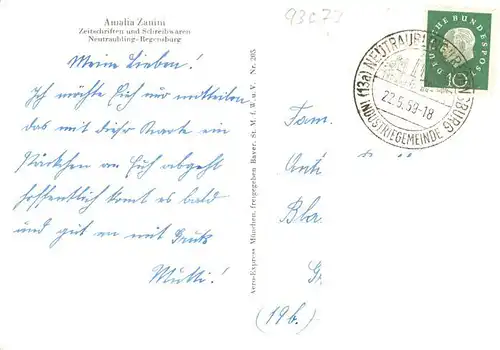 Amalia Zanini
Zeitschriften und Schreibwaren
Neutraubling-Regensburg
93073
Meine Lieben!
Ich möchte Euch nur mitteilen
das mit dieser Karte ein
Päckchen an Euch abgeht
hoffentlich komt es bald
und gut an mit Gruß
Mutti!
Aero-Express München, freigegeben Bayer. St. M. f. W. u. V. Nr. 205
DEUTSCHE BUNDESPOST
10
(13a) NEUTRAUBLING
22.5.59-18
INDUSTRIEGEMEINDE
Fam.
Anti
Bla
Gr
(19b.